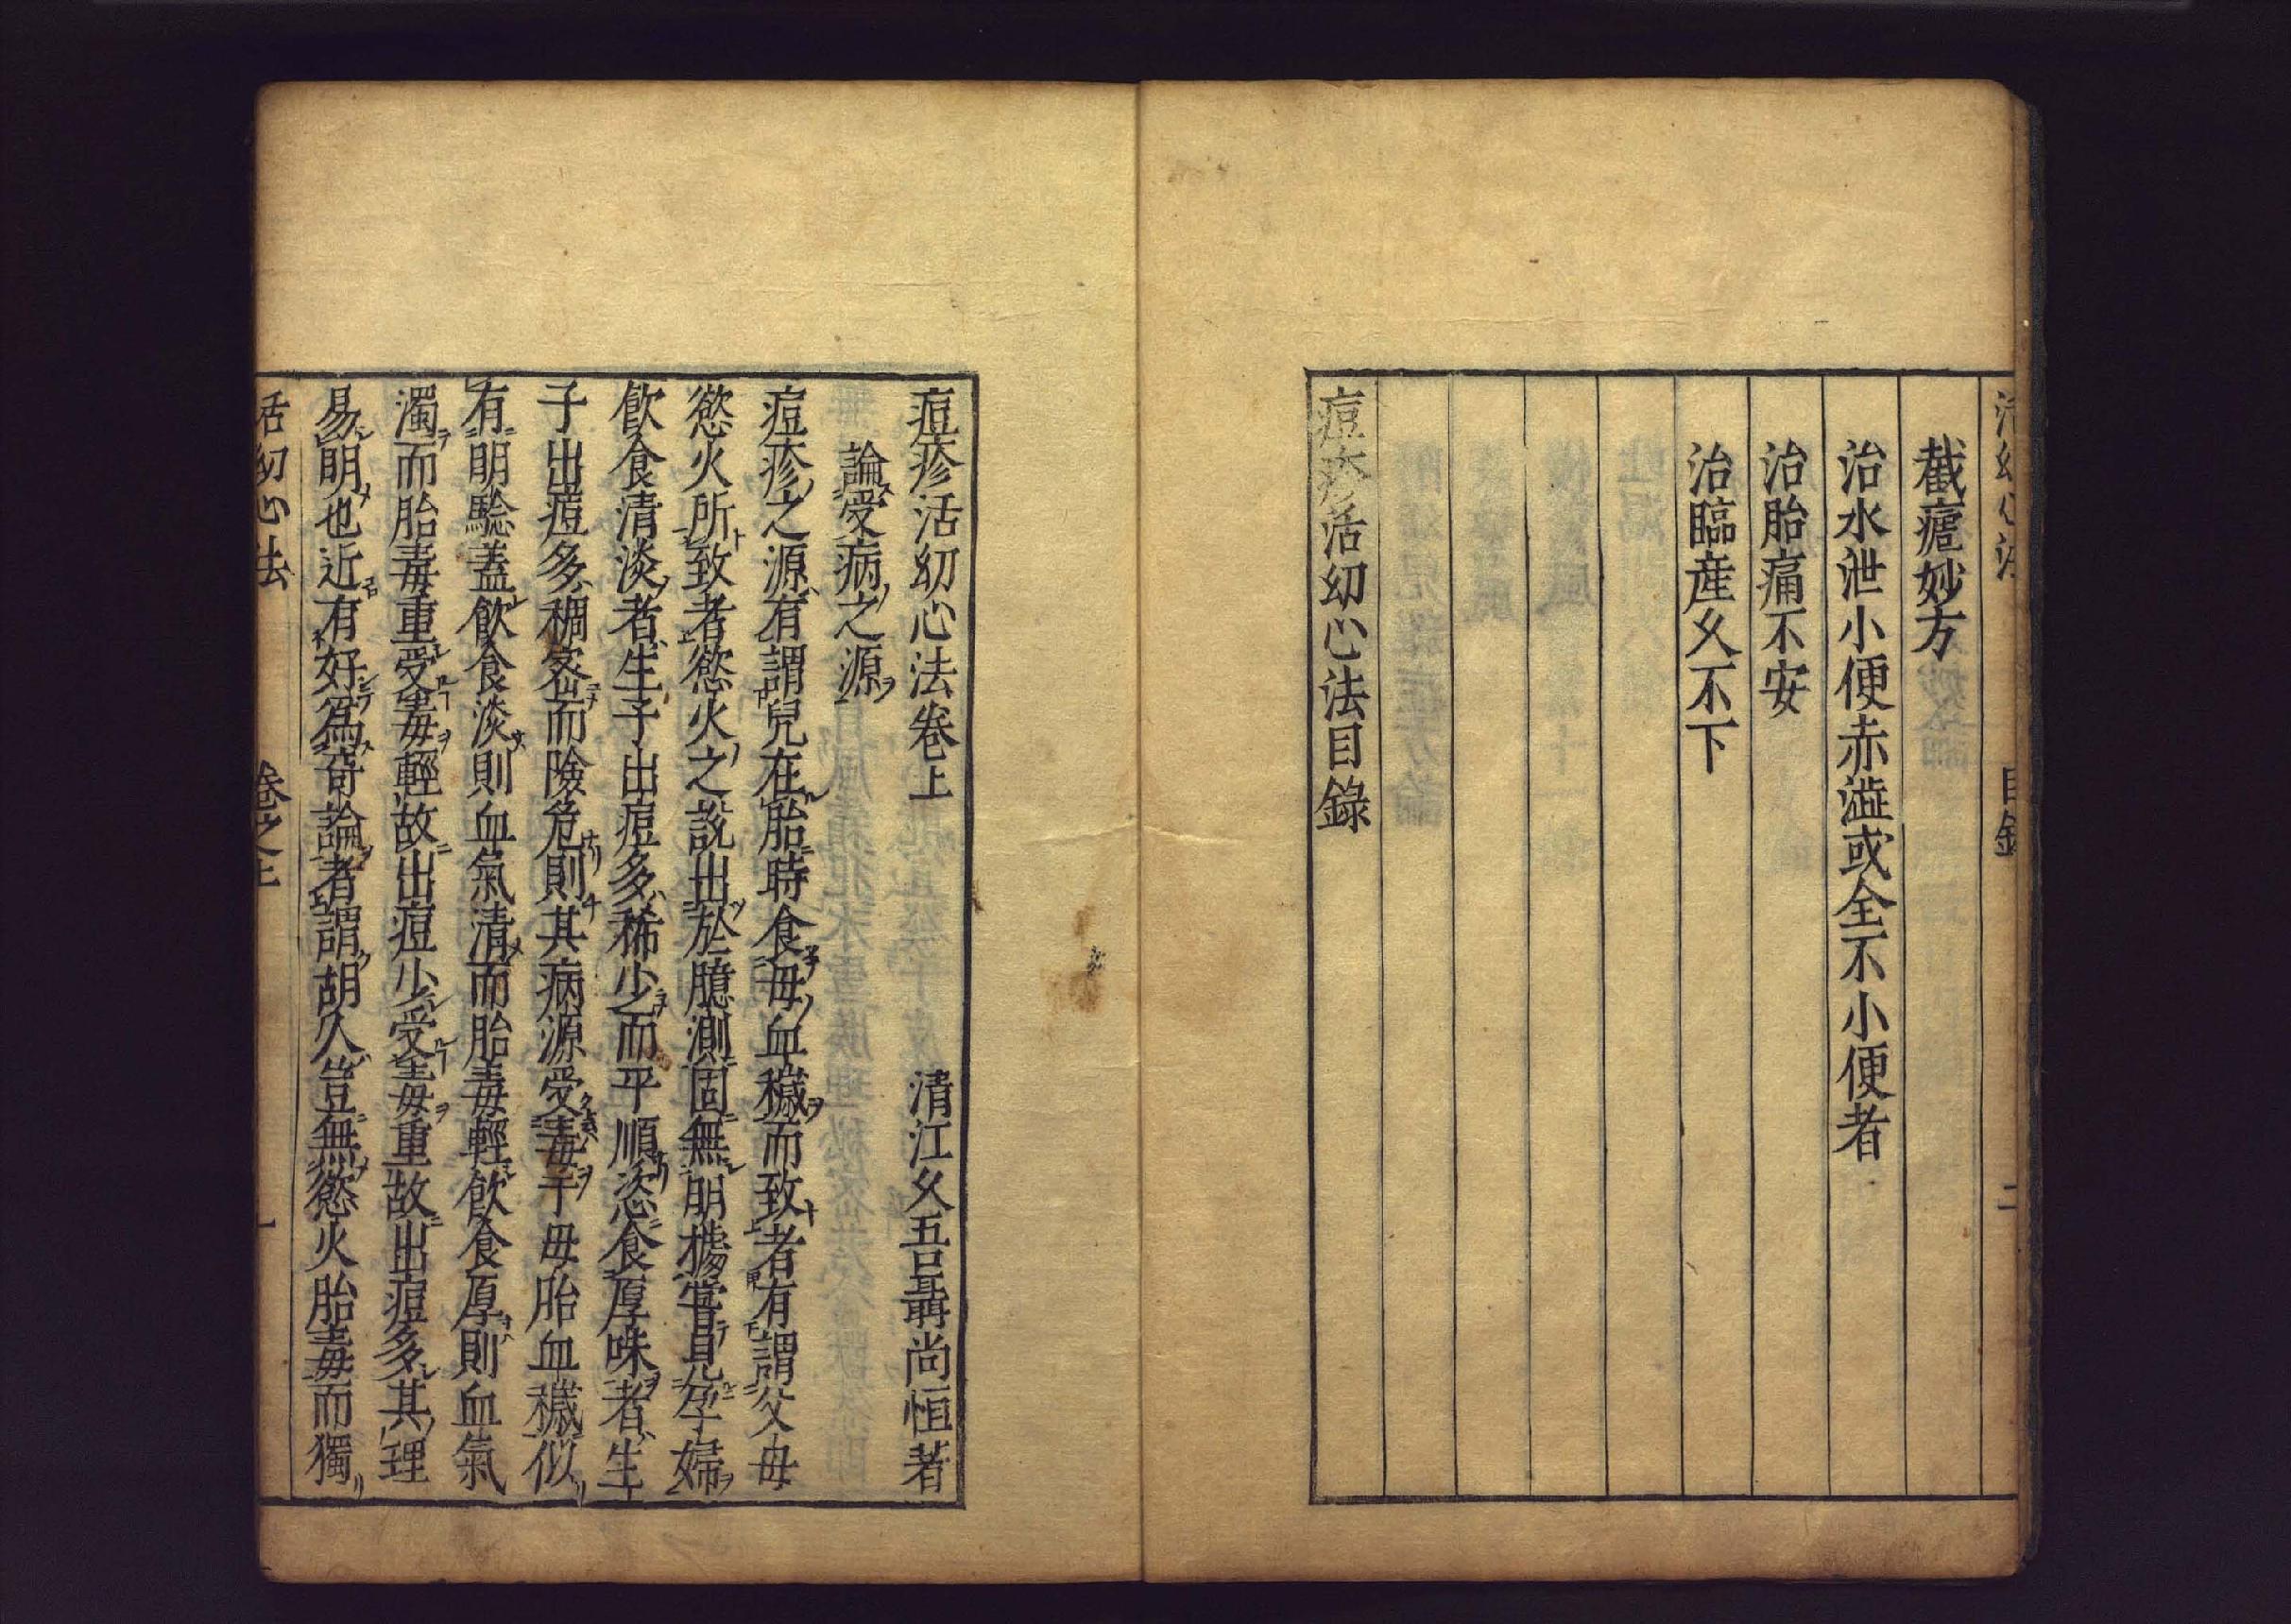 目錄
二
截瘧妙方
治水泄小便赤澁或全不小便者
治胎痛不安
治臨産久不下
痘疹活幼心法目錄
痘疹活幼心法卷上
清江久吾聶尚恒著
論受病之源
痘疹之源有謂兒在胎時食母血穢而致者有謂父母
慾火所致者慾火之説出於臆測固無明據嘗見孕婦
飲食清淡者生子出痘多稀少而平順恣食厚味者生
子出痘多稠宻而險危則其病源受毒于母胎血穢似
有明驗蓋飲食淡則血氣清而胎毒輕飲食厚則血氣
濁而胎毒重受毒輕故出痘少受毒重故出痘多其理
易明也近有好爲竒論者謂胡人豈無慾火胎毒而獨
活幼心法
卷之上
一